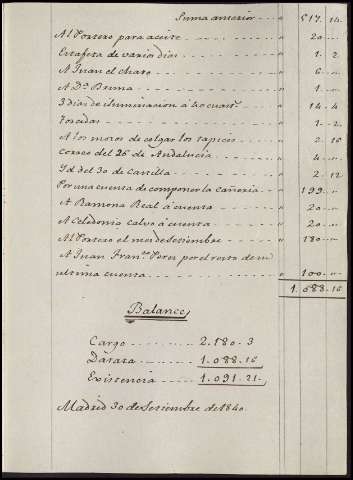 Suma anterior - - " 517. 14.
Al Portero para aceite - - - - " 20 - -
Estafeta de varios dias - - - - " 1 - 2
A Juan el chato - - - - " 6 - -
A D.ª Bruna - - - - " 1 - -
3 dias de iluminacion á 40 cuart.s " 14 - 4
Torcidas - - - - " 1 - 2
A los mozos de colgar los tapices - - " 2 - 10
Correo del 26 de Andalucia - - - - " 4 - -
Id del 30 de Castilla - - - - " 2 - 12
Por una cuenta de componer la cañeria - - " 199 - -
A Ramona Real á cuenta - - - - " 20 - -
A Celedonio Calvo á cuenta - - - - " 20 - -
Al Portero el mes de Setiembre - - " 180 - -
A Juan Fran.co Perez por el resto de su
ultima cuenta - - - - " 100 - -
1.088 - 16
Balance
Cargo - - - - 2.180 - 3
Datata - - - - 1.088 - 16
Existencia - - - - 1.091 - 21 -
Madrid 30 de Setiembre de 1840